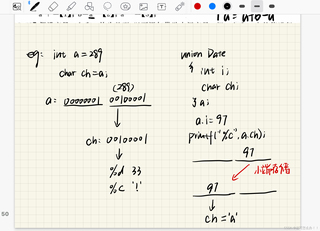 eg: int a = 289
char ch = a;
(289)
a: 00000001 00100001
ch: 00100001
%d 33
%c '!'
union Date
{ int i;
char ch;
} a;
a.i = 97
printf("%c", a.ch);
97
小端存储
97
ch = 'a'
50